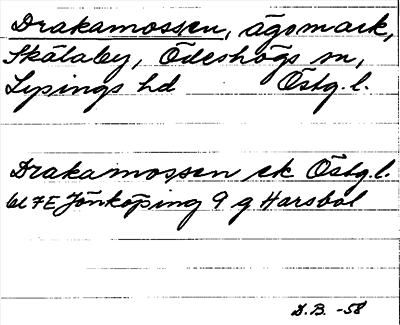 Drakamossen, ägomark,
Skälaby, Ödeshögs sn,
Lysings hd Östg. l.
Drakamossen ek Östg. l.
bl 7E Jönköping 9 g Harsbol
D.B. -58